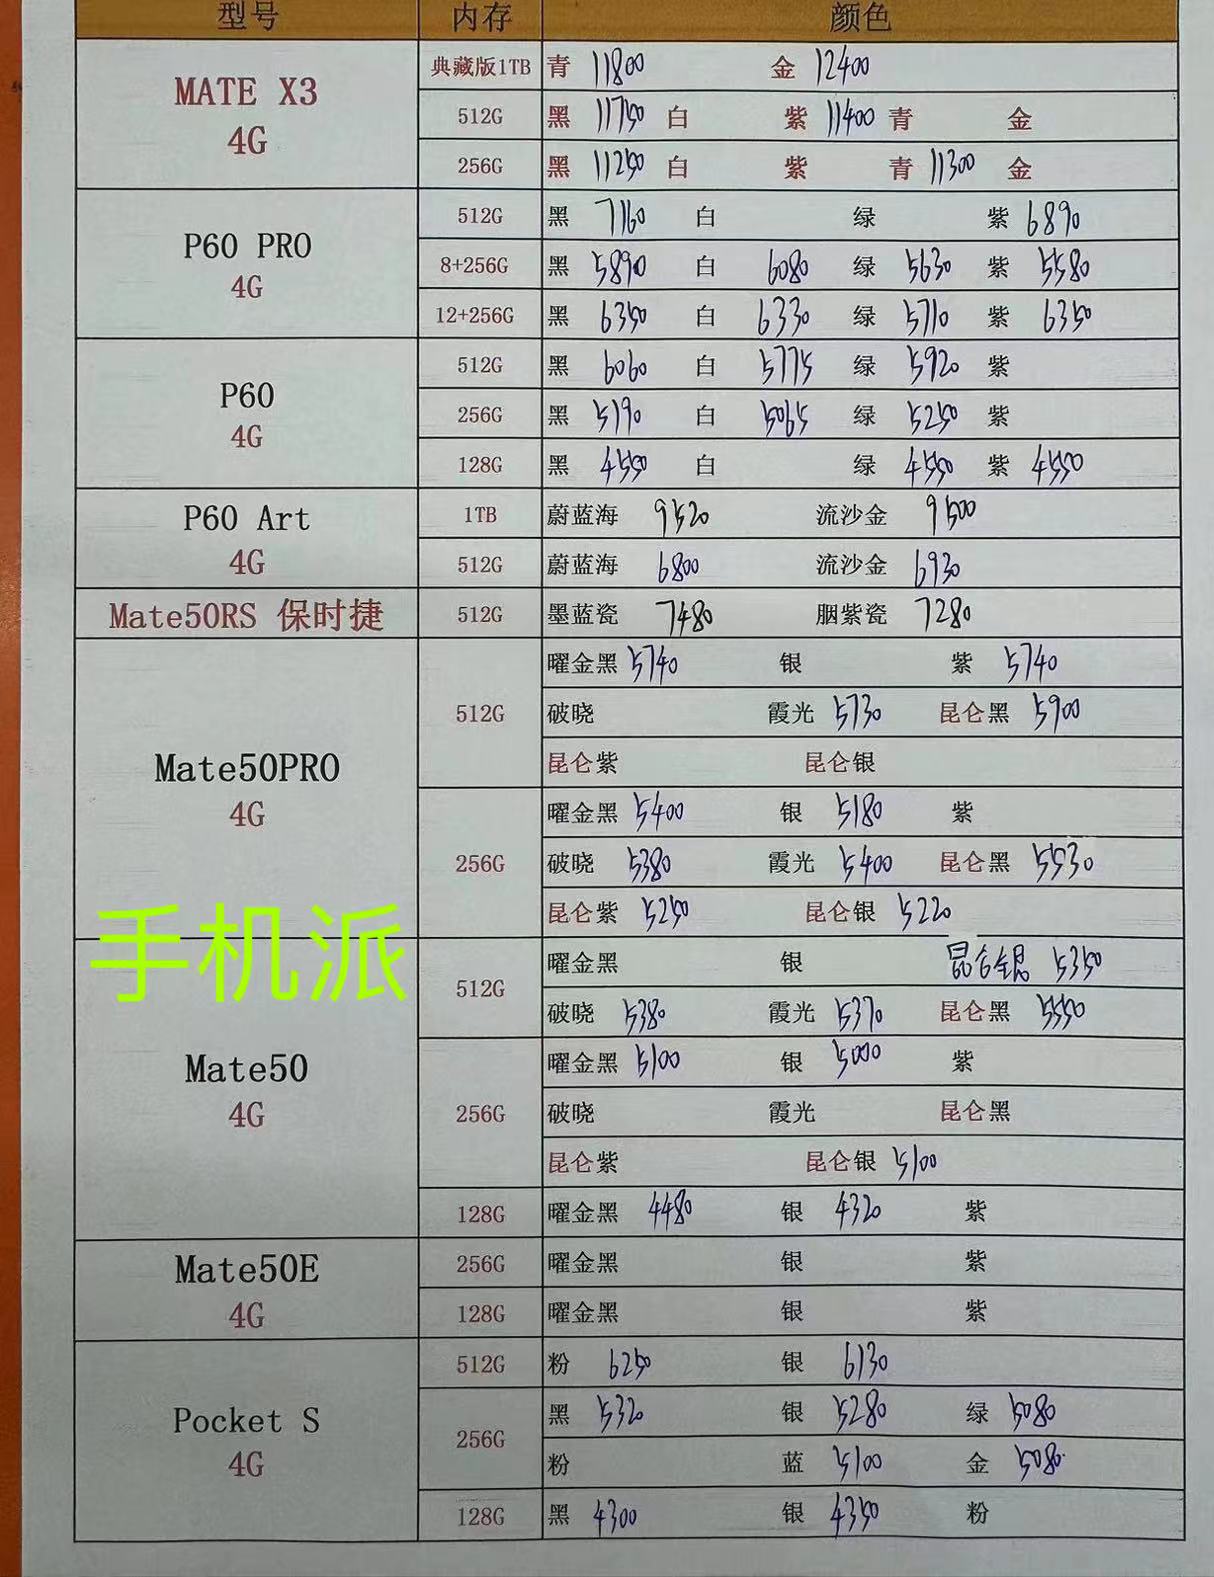 型号 内存 颜色
MATE X3 4G
典藏版1TB 青 11800 金 12400
512G 黑 11750 白 紫 11400 青 金
256G 黑 11250 白 紫 青 11300 金
P60 PRO 4G
512G 黑 7160 白 绿 紫 6890
8+256G 黑 5890 白 6080 绿 5630 紫 5580
12+256G 黑 6350 白 6330 绿 5710 紫 6350
P60 4G
512G 黑 6060 白 5775 绿 5920 紫
256G 黑 5190 白 5065 绿 5250 紫
128G 黑 4550 白 绿 4550 紫 4550
P60 Art 4G
1TB 蔚蓝海 9520 流沙金 9500
512G 蔚蓝海 6800 流沙金 6930
Mate50RS 保时捷 512G 墨蓝瓷 7480 胭紫瓷 7280
Mate50PRO 4G
512G 曜金黑 5740 银 紫 5740
破晓 霞光 5730 昆仑黑 5900
昆仑紫 昆仑银
256G 曜金黑 5400 银 5180 紫
破晓 5380 霞光 5400 昆仑黑 5530
昆仑紫 5250 昆仑银 5220
手机派
Mate50 4G
512G 曜金黑 银 昆仑银 5350
破晓 5380 霞光 5370 昆仑黑 5550
256G 曜金黑 5100 银 5000 紫
破晓 霞光 昆仑黑
昆仑紫 昆仑银 5100
128G 曜金黑 4480 银 4320 紫
Mate50E 4G
256G 曜金黑 银 紫
128G 曜金黑 银 紫
Pocket S 4G
512G 粉 6250 银 6130
256G 黑 5320 银 5280 绿 5080
粉 蓝 5100 金 5080
128G 黑 4300 银 4350 粉